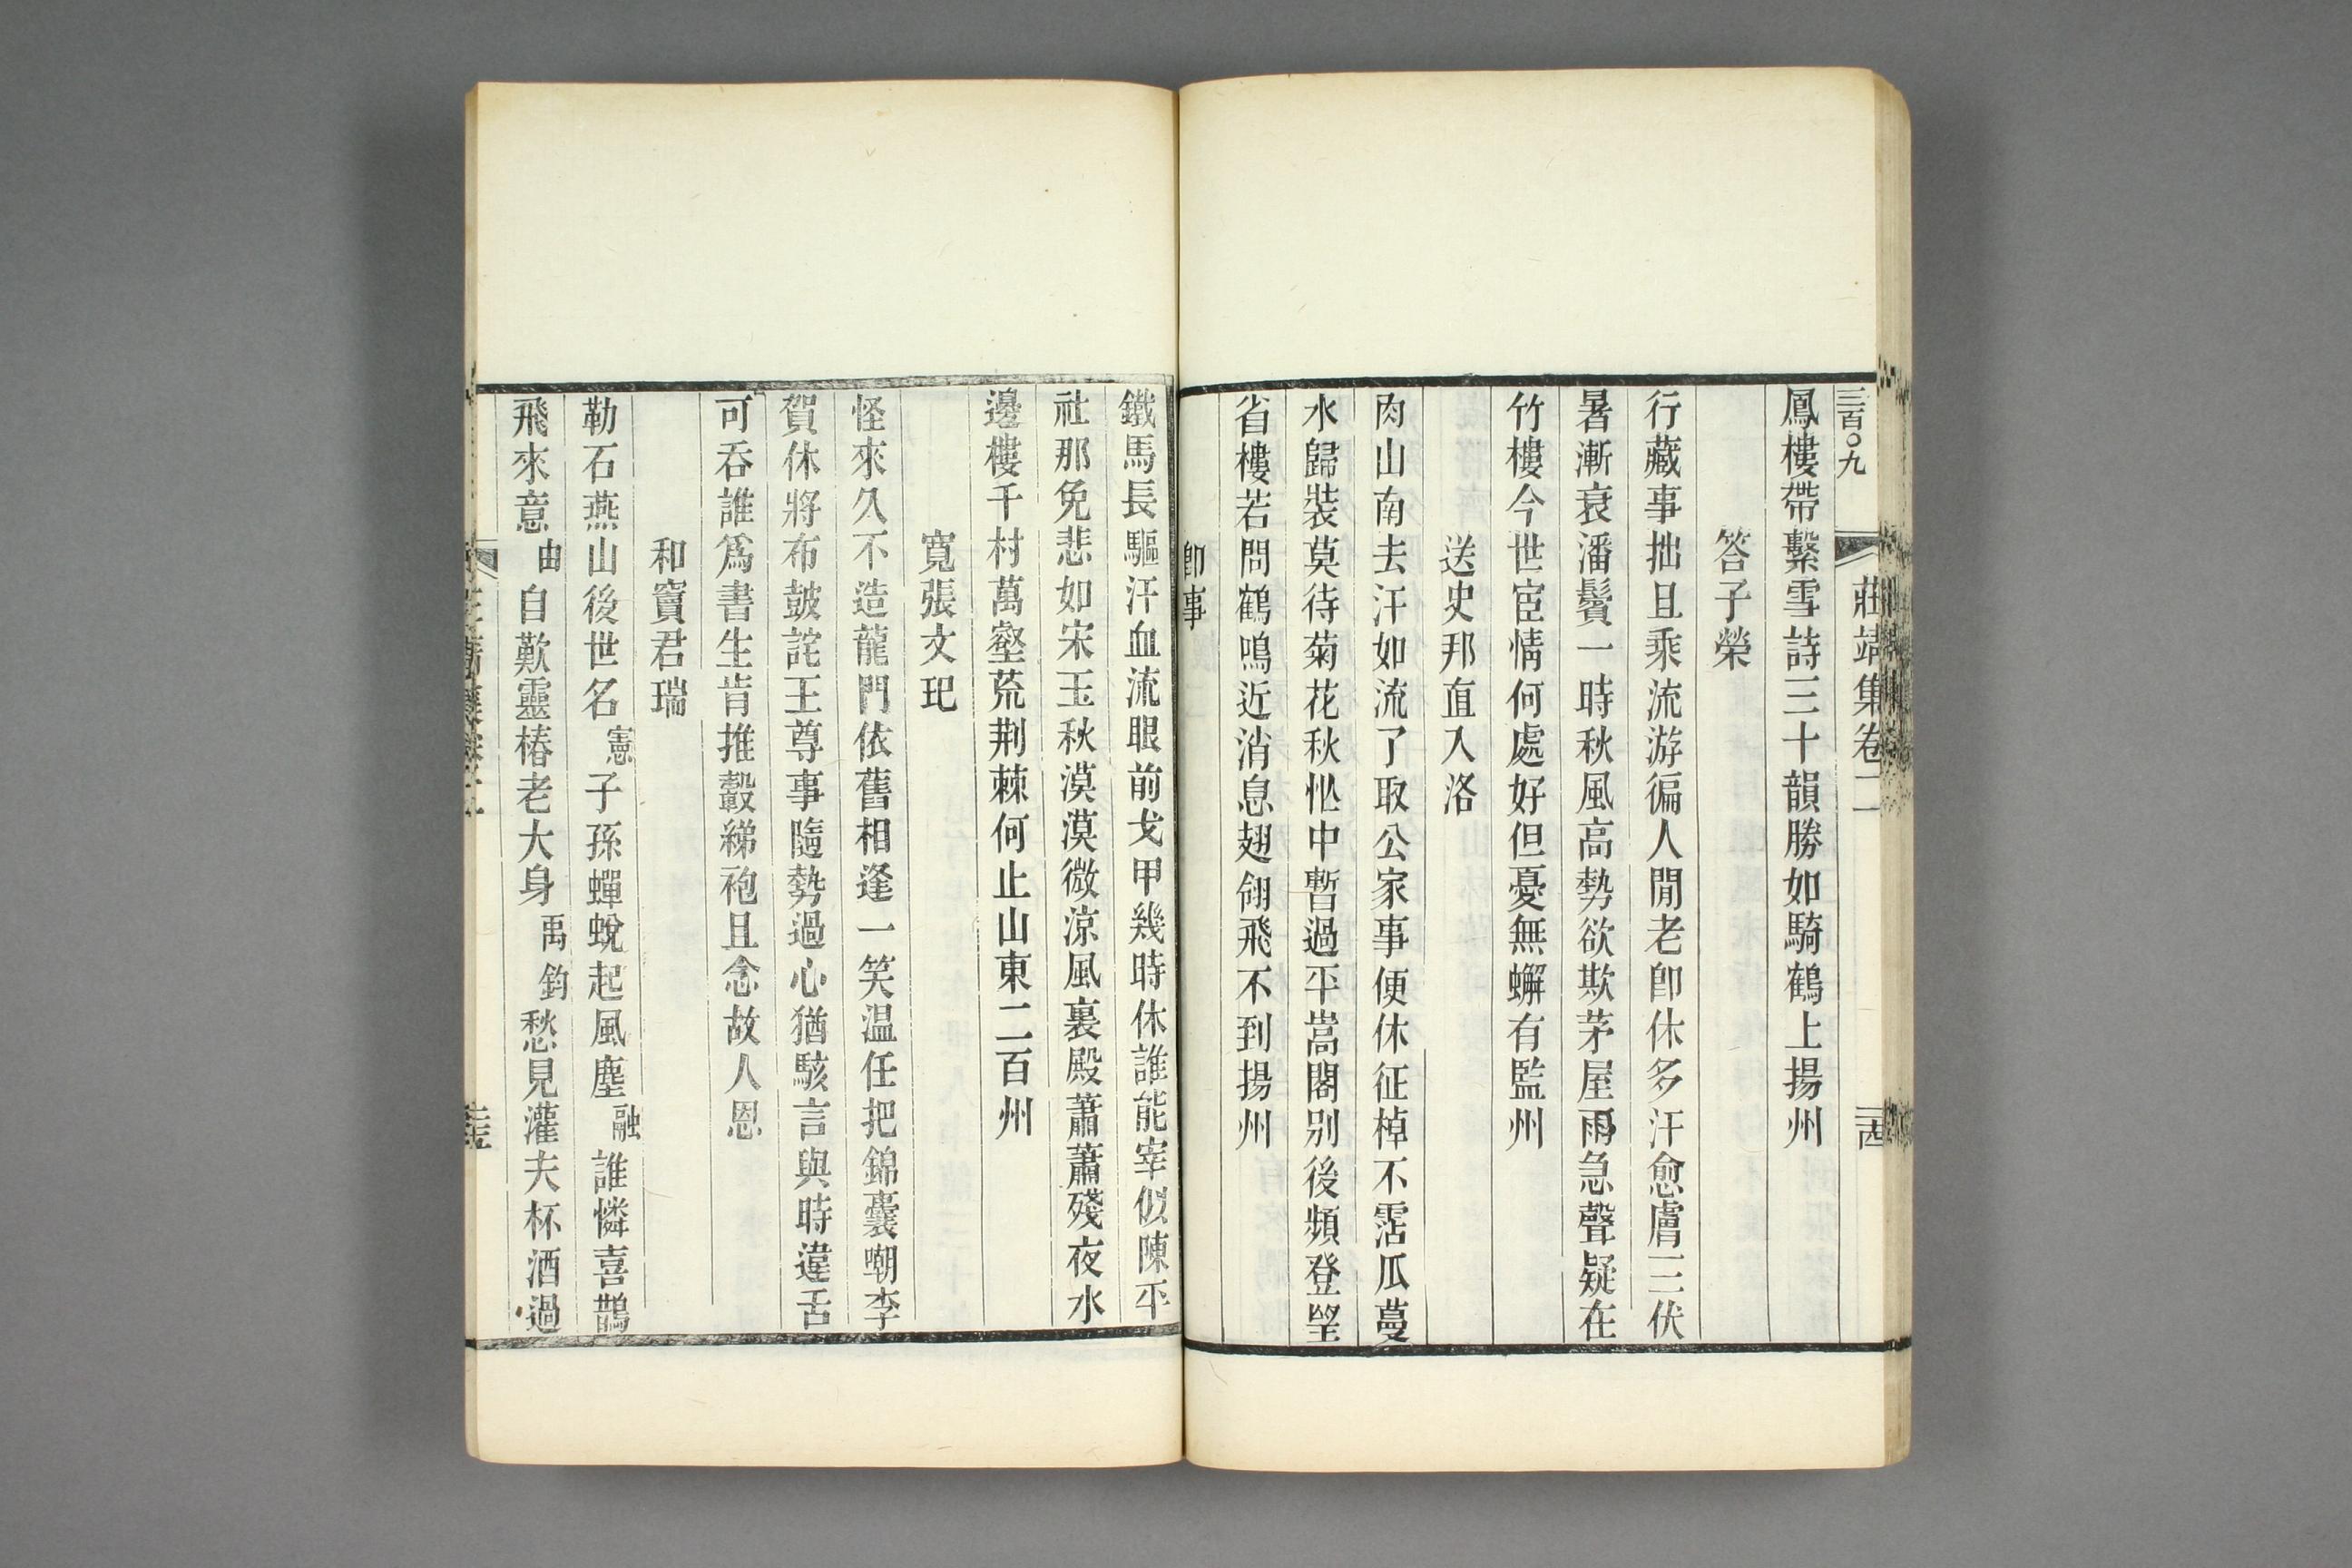 三百〇九
莊靖集卷二
鳳樓帶繫雪詩三十韻勝如騎鶴上揚州
答子榮
行藏事拙且乘流游徧人閒老卽休多汗愈膚三伏
暑漸衰潘鬢一時秋風高勢欲欺茅屋雨急聲疑在
竹樓今世宦情何處好但憂無蠏有監州
送史邦直入洛
肉山南去汗如流了取公家事便休征棹不霑瓜蔓
水歸裝莫待菊花秋怭中暫過平嵩閣别後頻登望
省樓若問鶴鳴近消息翅翎飛不到揚州
卽事
鐵馬長驅汗血流眼前戈甲幾時休誰能宰似陳平
社那免悲如宋玉秋漠漠微涼風裏殿蕭蕭殘夜水
邊樓千村萬壑荒荆棘何止山東二百州
寬張文玘
怪來久不造龍門依舊相逢一笑温任把錦囊嘲李
賀休將布鼓詫王尊事隨勢過心猶駭言與時違舌
可吞誰爲書生肯推轂綈袍且念故人恩
和竇君瑞
勒石燕山後世名憲子孫蟬蛻起風塵融誰憐喜鵲
飛來意由自歎靈椿老大身禹鈞愁見灌夫杯酒過